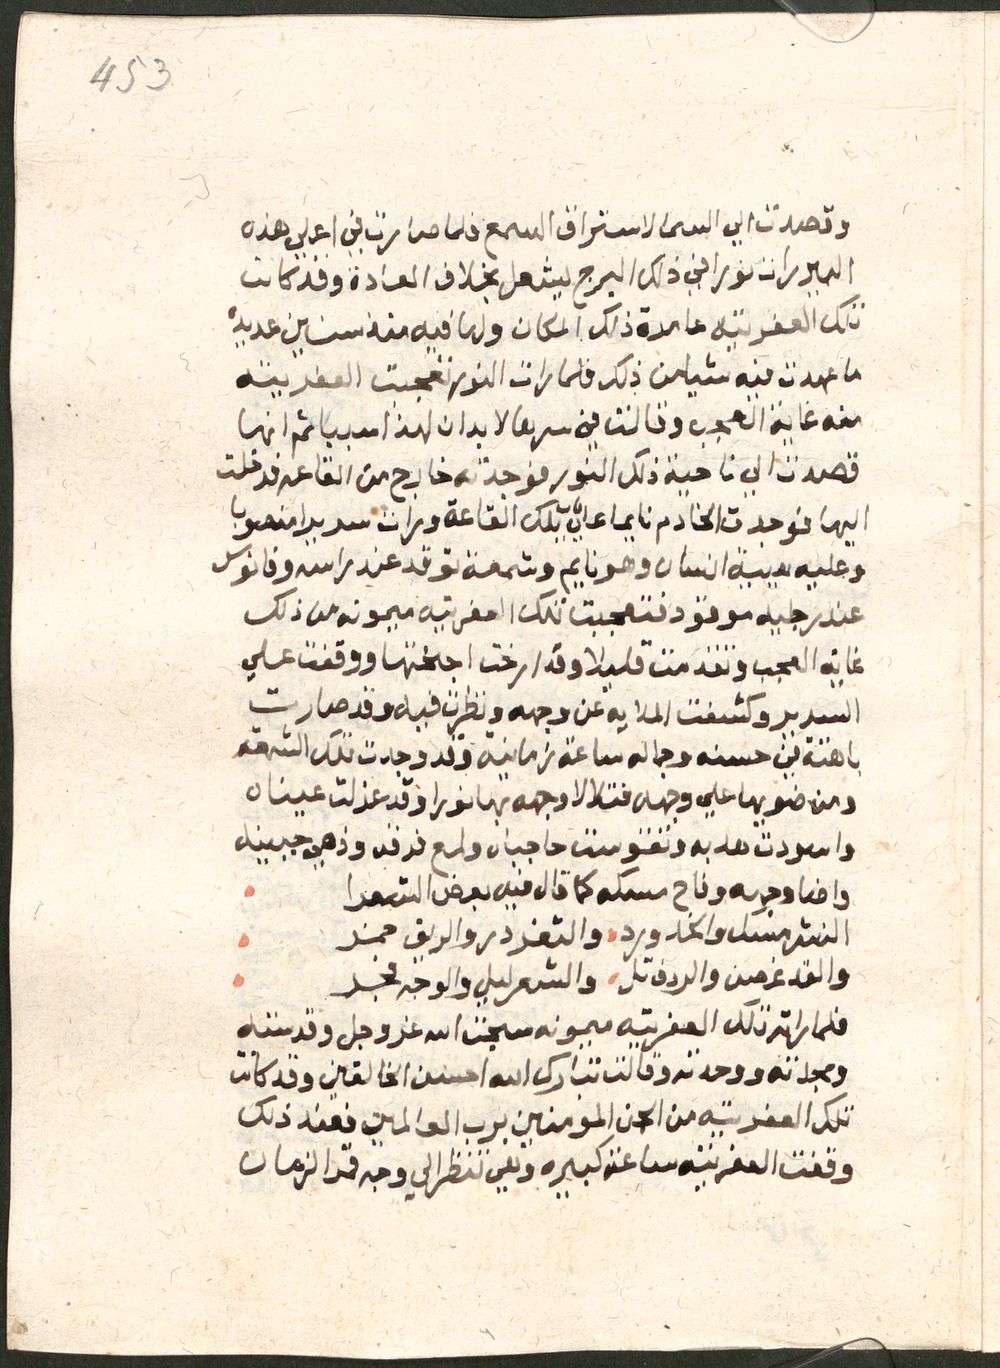 453
وقصدت الي السما لاستراق السمع فلما صارت في اعلي هذه
البير رات نورا في ذلك البرج يشعل بخلاف العادة وقد كانت
تلك العفريته عامرة ذلك المكان ولها فيه مده سنين عديده
ما عهدت فيه شيا من ذلك فلما رات النور تعجبت العفريته
منه غاية العجب وقالت في سرها لا بد ان لهذا سببا ثم انها
قصدت الي ناحية ذلك النور فوجدته خارج من القاعه فدخلت
اليها فوجدت الخادم نايما علي تلك القاعة ورات سريرا منصوبا
وعليه هيية انسان وهو نايم وشمعة توقد عند راسه وفانوس
عند رجليه موقود فتعجبت تلك العفريته ميمونه من ذلك
غاية العجب وتقدمت قليلا وقد ارخت اجنحتها ووقفت علي
السرير وكشفت الملايه عن وجهه ونظرت فيه وقد صارت
باهتة في حسنه وجماله ساعة زمانية وقد وجدت تلك الشمعه
ومن ضويها علي وجهه فتلالا وجهه بها نورا وقد غزلت عيناه
واسودت هدبه وتقوست حاجباه ولمع فرقه وزهي جبينه
واضا وجهه وفاح مسكه كما قال فيه بعض الشعرا
النشر مسك والخد ورد والثغر در والريق خمر
والقد غصن والردف تل والشعر ليل والوجه فجر
فلما راته تلك العفريته ميمونه سبحت الله عز وجل وقدسته
ومجدته ووحدته وقالت تبارك الله احسن الخالقين وقد كانت
تلك العفريته من الجن المومنين برب العالمين فعند ذلك
وقفت العفريته ساعة كبيره وهي تنظر الي وجه قمر الزمان